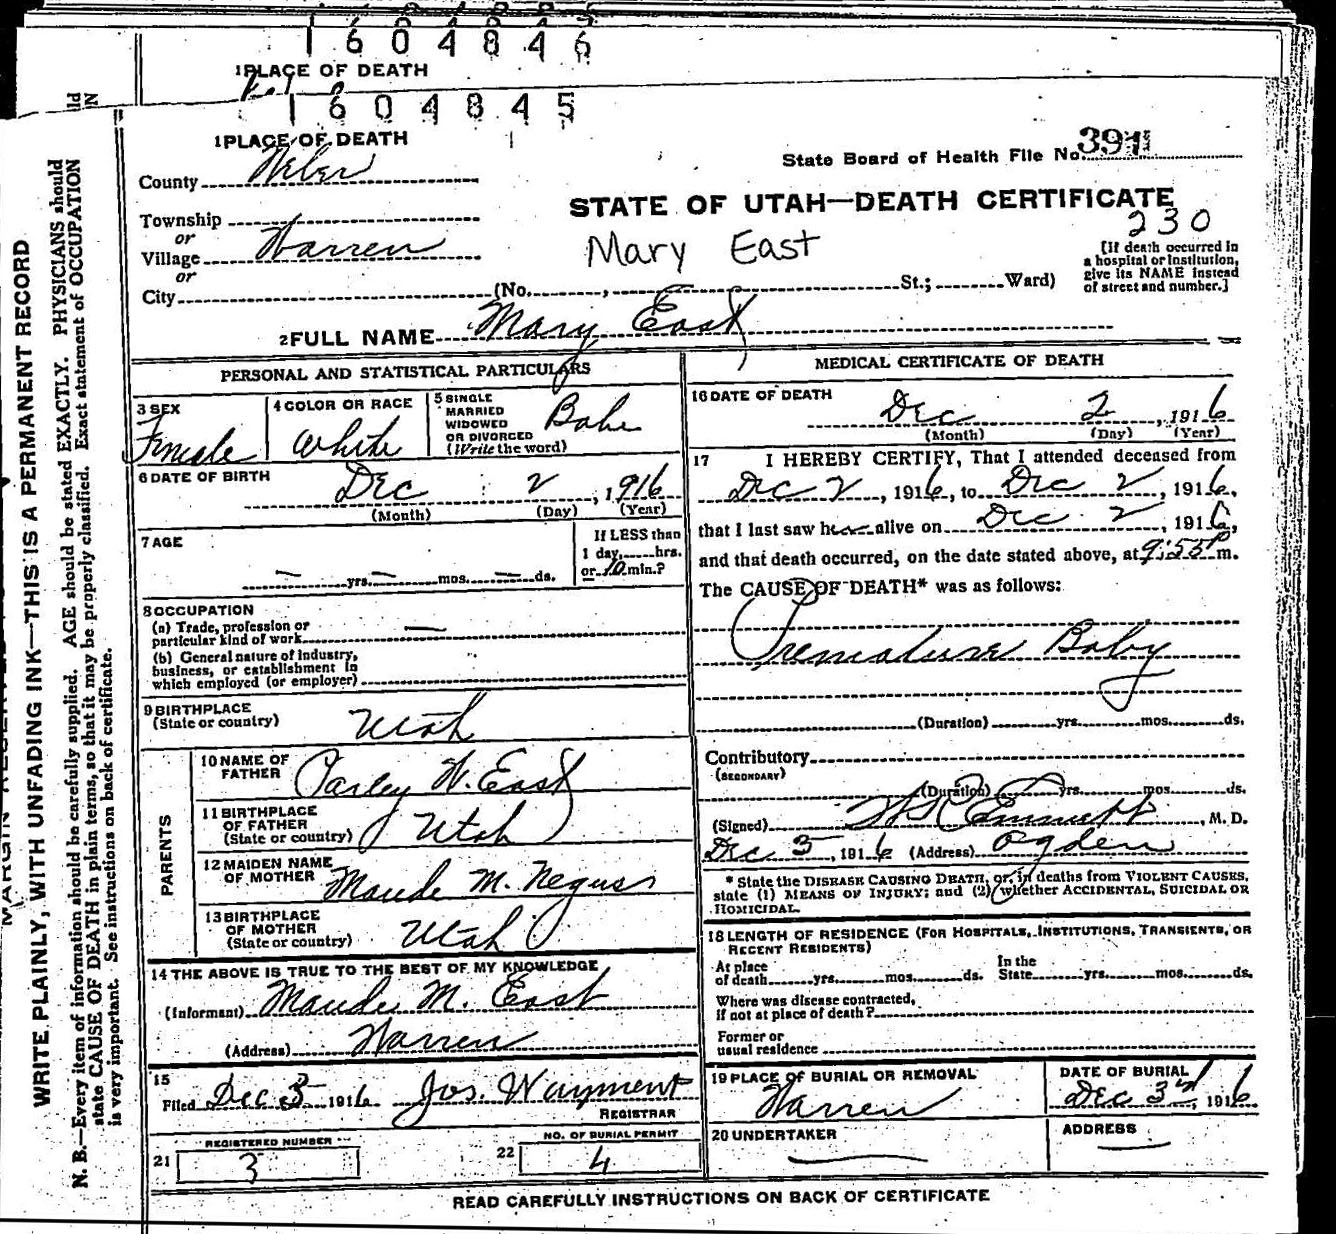 1 6 0 4 8 4 6
1 PLACE OF DEATH
1 6 0 4 8 4 5
1 PLACE OF DEATH
State Board of Health File No. 391
County Weber
STATE OF UTAH—DEATH CERTIFICATE
230
Township
or
Village Warren
or
Mary East
[If death occurred in
a hospital or institution,
give its NAME instead
of street and number.]
City (No. , St.; Ward)
2 FULL NAME Mary East
PERSONAL AND STATISTICAL PARTICULARS
3 SEX
Female
4 COLOR OR RACE
White
5 SINGLE
MARRIED
WIDOWED
OR DIVORCED
(Write the word)
Babe
6 DATE OF BIRTH
Dec 2, 1916
(Month) (Day) (Year)
7 AGE
— yrs. — mos. — ds.
If LESS than
1 day, hrs.
or 10 min.?
8 OCCUPATION
(a) Trade, profession or
particular kind of work —
(b) General nature of industry,
business, or establishment in
which employed (or employer)
9 BIRTHPLACE
(State or country) Utah
PARENTS
10 NAME OF
FATHER Parley W. East
11 BIRTHPLACE
OF FATHER
(State or country) Utah
12 MAIDEN NAME
OF MOTHER Maude M. Negus
13 BIRTHPLACE
OF MOTHER
(State or country) Utah
14 THE ABOVE IS TRUE TO THE BEST OF MY KNOWLEDGE
(Informant) Maude M. East
(Address) Warren
15
Filed Dec 3 1916 Jos. Wayment
REGISTRAR
REGISTERED NUMBER
21 3
NO. OF BURIAL PERMIT
22 4
MEDICAL CERTIFICATE OF DEATH
16 DATE OF DEATH
Dec 2, 1916
(Month) (Day) (Year)
17 I HEREBY CERTIFY, That I attended deceased from
Dec 2, 1916, to Dec 2, 1916,
that I last saw her alive on Dec. 2, 1916,
and that death occurred, on the date stated above, at 9:55 P m.
The CAUSE OF DEATH* was as follows:
Premature Baby
(Duration) yrs. mos. ds.
Contributory
(SECONDARY)
(Duration) yrs. mos. ds.
(Signed) Emmett, M. D.
Dec 3, 1916 (Address) Ogden
* State the DISEASE CAUSING DEATH, or, in deaths from VIOLENT CAUSES,
state (1) MEANS OF INJURY; and (2) whether ACCIDENTAL, SUICIDAL OR
HOMICIDAL.
18 LENGTH OF RESIDENCE (FOR HOSPITALS, INSTITUTIONS, TRANSIENTS, OR
RECENT RESIDENTS)
At place
of death yrs. mos. ds.
In the
State yrs. mos. ds.
Where was disease contracted,
if not at place of death?
Former or
usual residence
19 PLACE OF BURIAL OR REMOVAL
Warren
DATE OF BURIAL
Dec 3rd, 1916
20 UNDERTAKER
—
ADDRESS
—
READ CAREFULLY INSTRUCTIONS ON BACK OF CERTIFICATE
WRITE PLAINLY, WITH UNFADING INK—THIS IS A PERMANENT RECORD
N. B.—Every item of information should be carefully supplied. AGE should be stated EXACTLY. PHYSICIANS should
state CAUSE OF DEATH in plain terms, so that it may be properly classified. Exact statement of OCCUPATION
is very important. See instructions on back of certificate.